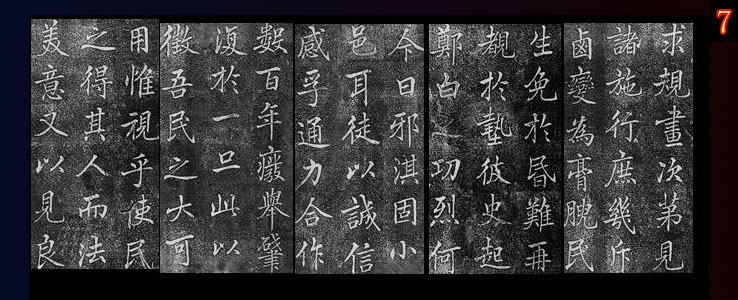 7
求規畫次第見
諸施行庶幾斥
鹵變為膏腴民
生免於昏難再
覩於墊彼史起
鄭白之功烈何
今日邪淇固小
邑耳徒以誠信
感孚通力合作
數百年癈舉肇
復於一旦此以
徵吾民之大可
用惟視乎使民
之得其人而法
美意又以見良